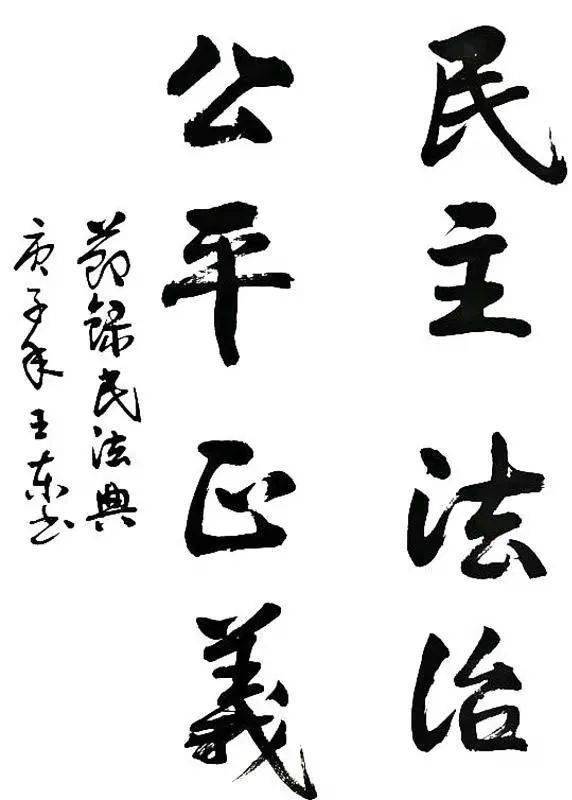 民主法治
公平正義
節録民法典
庚子年王东书